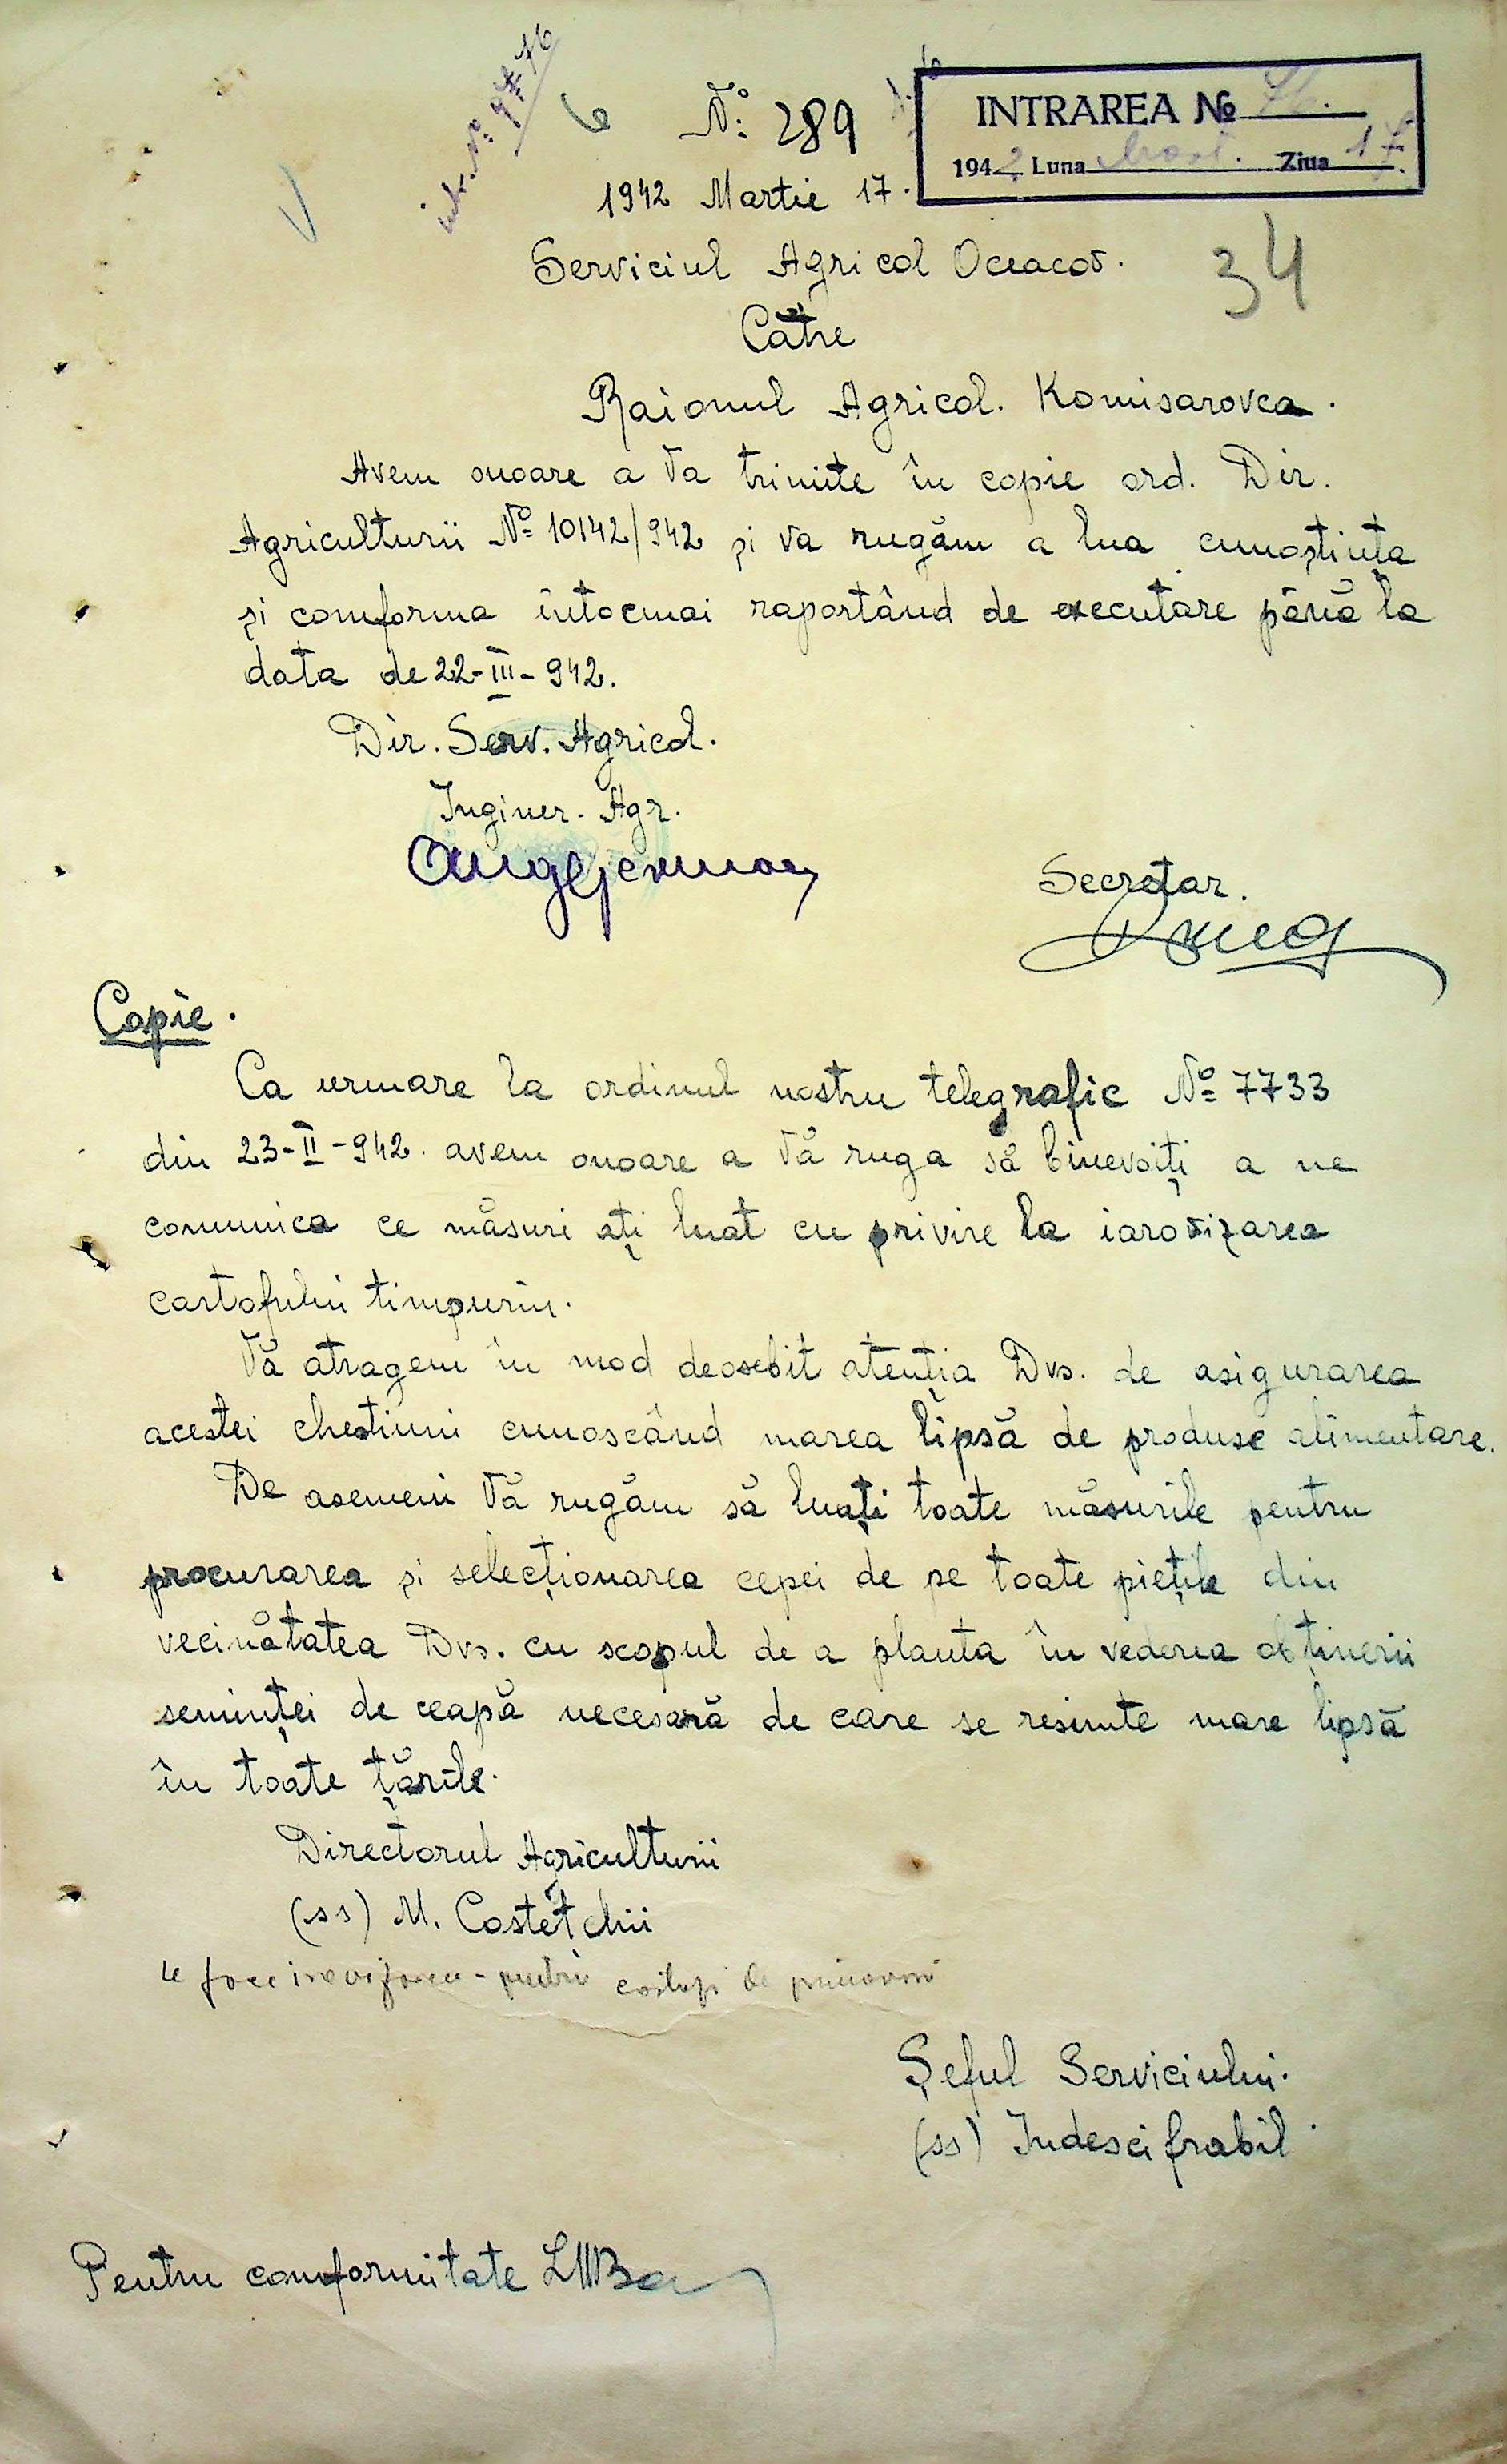 Nº 289
INTRAREA № 76.
1942 Luna Mart. Ziua 17.
1942 Martie 17.
34
Serviciul Agricol Oceacov.
Către
Raionul Agricol. Komisarovca.
Avem onoare a Va trimite în copie ord. Dir.
Agriculturii Nº 10142/942 și va rugăm a lua cunoștința
și comforma întocmai raportând de executare pănă la
data de 22-III-942.
Dir. Serv. Agricol.
Inginer. Agr.
Secretar.
Copie.
Ca urmare la ordinul nostru telegrafic Nº 7733
din 23-II-942. avem onoare a Vă ruga să binevoiți a ne
comunica ce măsuri ați luat cu privire la iarovizarea
cartofului timpuriu.
Vă atragem în mod deosebit atenția Dvs. de asigurarea
acestei chestiuni cunoscând marea lipsă de produse alimentare.
De asemeni Vă rugăm să luați toate măsurile pentru
procurarea și selecționarea cepei de pe toate piețile din
vecinătatea Dvs. cu scopul de a planta în vederea obținerii
seminței de ceapă necesară de care se resimte mare lipsă
în toate țările.
Directorul Agriculturii
(ss) M. Costețchii
Șeful Serviciului.
(ss) Indescifrabil.
Pentru comformitate